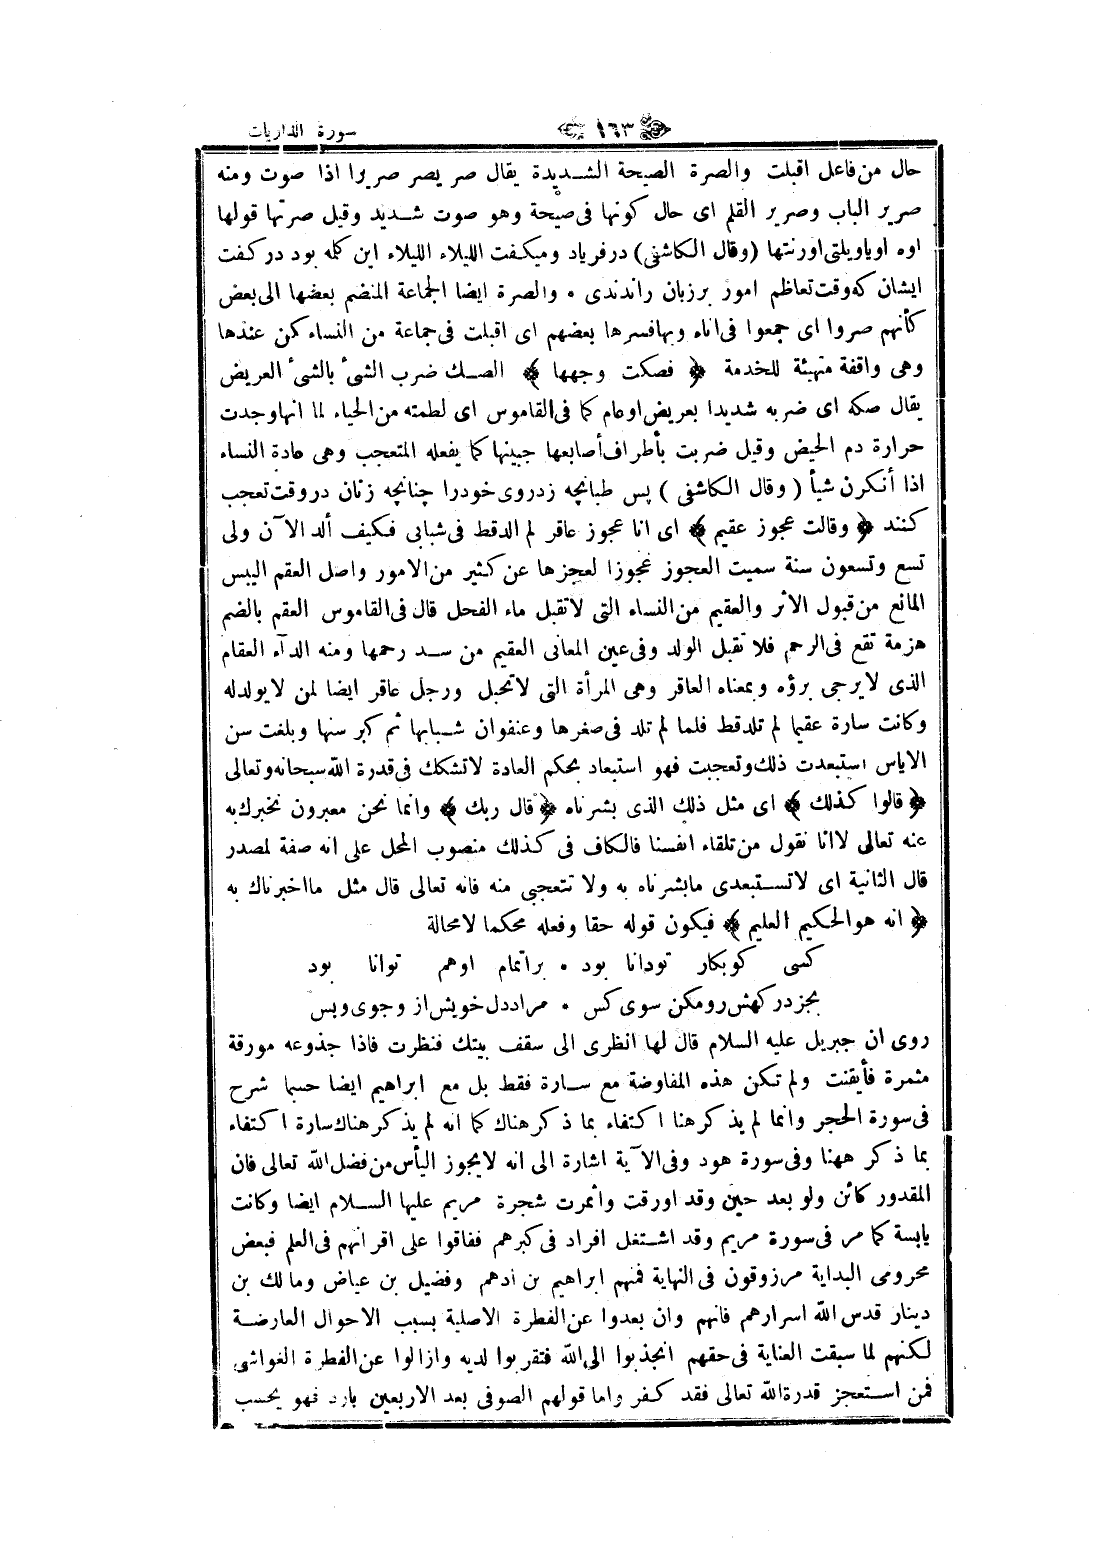 ١٦٣ سورة الذاريات
حال من فاعل اقبلت والصرة الصيحة الشديدة يقال صر يصر صريرا اذا صوت ومنه
صرير الباب وصرير القلم اى حال كونها فى صيحة وهو صوت شديد وقيل صرتها قولها
اوه اوياويلتى اورنتها (وقال الكاشفى) درفرياد وميكفت الليلاء الليلاء اين كله بود دركفت
ايشان كه وقت تعاظم امور برزبان راندندى • والصرة ايضا الجماعة المنضم بعضها الى بعض
كأنهم صروا اى جمعوا فى اناء وبهافسرها بعضهم اى اقبلت فى جماعة من النساء كن عندها
وهى واقفة متهيئة للخدمة ﴿ فصكت وجهها ﴾ الصك ضرب الشئ بالشئ العريض
يقال صكه اى ضربه شديدا بعريض اوعام كما فى القاموس اى لطمته من الحياء لما انها وجدت
حرارة دم الحيض وقيل ضربت بأطراف أصابعها جبينها كما يفعله المتعجب وهى عادة النساء
اذا أنكرن شيأ ( وقال الكاشفى ) پس طبانچه زدروى خودرا چنانچه زنان دروقت تعجب
كنند ﴿ وقالت عجوز عقيم ﴾ اى انا عجوز عاقر لم الدقط فى شبابى فكيف ألد الآن ولى
تسع وتسعون سنة سميت العجوز عجوزا لعجزها عن كثير من الامور واصل العقم اليبس
المانع من قبول الاثر والعقيم من النساء التى لاتقبل ماء الفحل قال فى القاموس العقم بالضم
هزمة تقع فى الرحم فلا تقبل الولد وفى عين المعانى العقيم من سد رحمها ومنه الدآء العقام
الذى لايرجى برؤه وبمعناه العاقر وهى المرأة التى لاتحبل ورجل عاقر ايضا لمن لايولدله
وكانت سارة عقيما لم تلدقط فلما لم تلد فى صغرها وعنفوان شبابها ثم كبر سنها وبلغت سن
الاياس استبعدت ذلك وتعجبت فهو استبعاد بحكم العادة لاتشكك فى قدرة الله سبحانه وتعالى
﴿ قالوا كذلك ﴾ اى مثل ذلك الذى بشرناه ﴿ قال ربك ﴾ وانما نحن معبرون نخبرك به
عنه تعالى لاانا نقول من تلقاء انفسنا فالكاف فى كذلك منصوب المحل على انه صفة لمصدر
قال الثانية اى لاتستبعدى مابشرناه به ولا تتعجبى منه فانه تعالى قال مثل مااخبرناك به
﴿ انه هوالحكيم العليم ﴾ فيكون قوله حقا وفعله محكما لامحالة
كسى كوبكار تودانا بود • براتمام اوهم توانا بود
بجز دركهش رومكن سوى كس • مراددل خويش از وجوى وبس
روى ان جبريل عليه السلام قال لها انظرى الى سقف بيتك فنظرت فاذا جذوعه مورقة
مثمرة فأيقنت ولم تكن هذه المفاوضة مع سارة فقط بل مع ابراهيم ايضا حسبما شرح
فى سورة الحجر وانما لم يذكر هنا اكتفاء بما ذكر هناك كما انه لم يذكر هناك سارة اكتفاء
بما ذكر ههنا وفى سورة هود وفى الآية اشارة الى انه لايجوز اليأس من فضل الله تعالى فان
المقدور كائن ولو بعد حين وقد اورقت وأثمرت شجرة مريم عليها السلام ايضا وكانت
يابسة كما مر فى سورة مريم وقد اشتغل افراد فى كبرهم ففاقوا على اقرانهم فى العلم فبعض
محرومى البداية مرزوقون فى النهاية فمنهم ابراهيم بن أدهم وفضيل بن عياض ومالك بن
دينار قدس الله اسرارهم فانهم وان بعدوا عن الفطرة الاصلية بسبب الاحوال العارضة
لكنهم لما سبقت العناية فى حقهم انجذبوا الى الله فتقربوا لديه وازالوا عن الفطرة الغواشى
فمن استعجز قدرة الله تعالى فقد كفر واما قولهم الصوفى بعد الاربعين بارد فهو بحسب